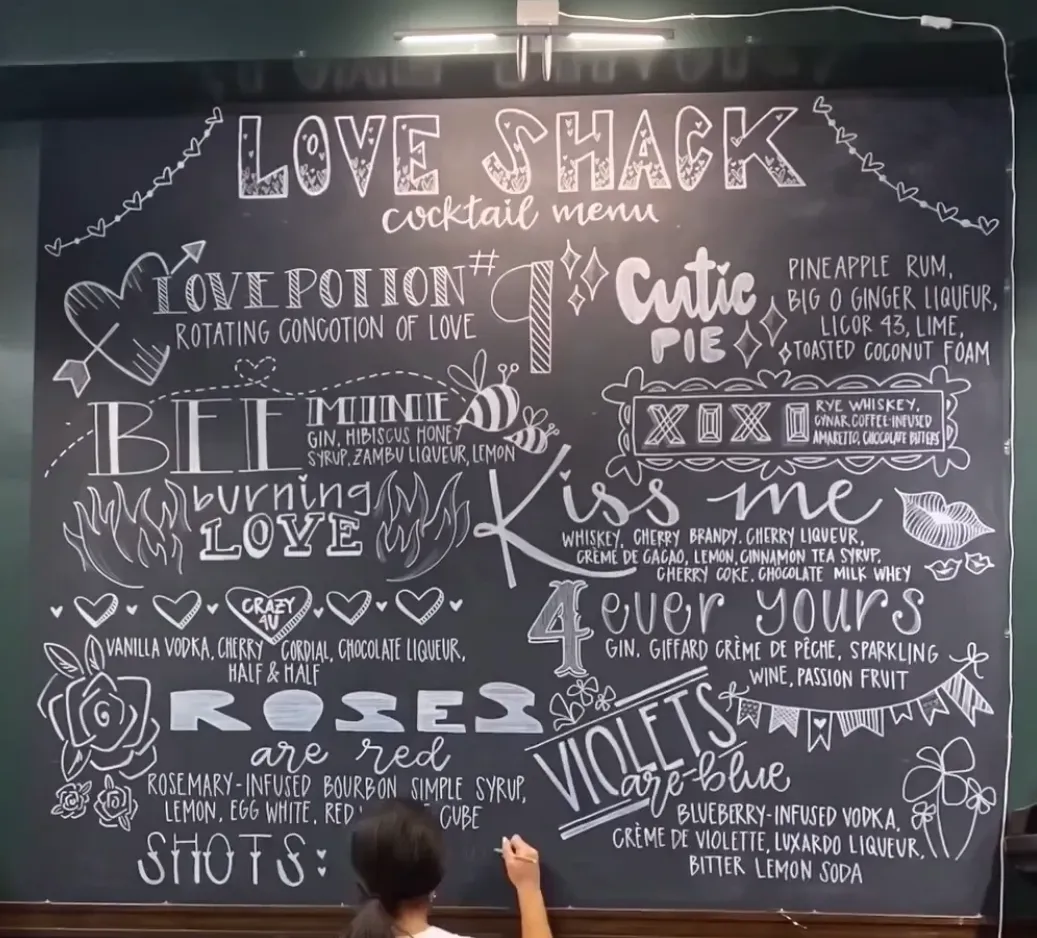 LOVE SHACK
cocktail menu
LOVE POTION #9
ROTATING CONCOTION OF LOVE
Cutie
PIE
PINEAPPLE RUM,
BIG O GINGER LIQUEUR,
LICOR 43, LIME,
TOASTED COCONUT FOAM
BEE MINE
GIN, HIBISCUS HONEY
SYRUP, ZAMBU LIQUEUR, LEMON
XOXO
RYE WHISKEY,
CYNAR, COFFEE-INFUSED
AMARETTO, CHOCOLATE BITTERS
burning
LOVE
Kiss me
WHISKEY, CHERRY BRANDY, CHERRY LIQUEUR,
CRÈME DE CACAO, LEMON, CINNAMON TEA SYRUP,
CHERRY COKE, CHOCOLATE MILK WHEY
CRAZY
4U
VANILLA VODKA, CHERRY CORDIAL, CHOCOLATE LIQUEUR,
HALF & HALF
4 ever yours
GIN, GIFFARD CRÈME DE PÊCHE, SPARKLING
WINE, PASSION FRUIT
ROSES
are red
ROSEMARY-INFUSED BOURBON SIMPLE SYRUP,
LEMON, EGG WHITE, RED CUBE
VIOLETS
are blue
BLUEBERRY-INFUSED VODKA,
CRÈME DE VIOLETTE, LUXARDO LIQUEUR,
BITTER LEMON SODA
SHOTS: